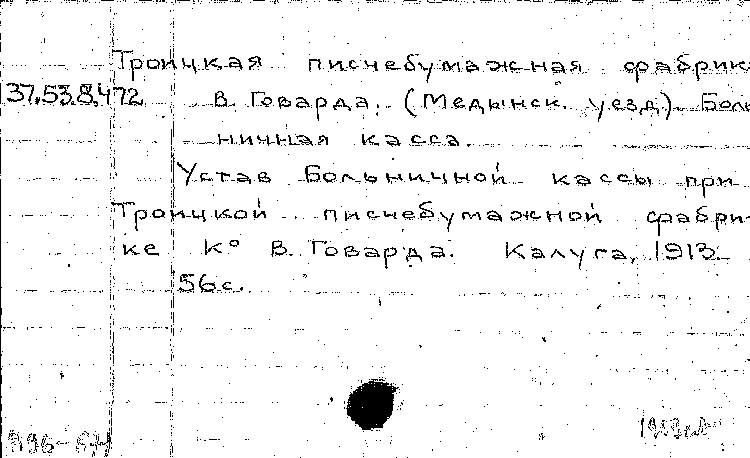 Троицкая писчебумажная фабрик
37.53.8.472 В. Говарда. (Медынск. уезд). Боль
ничная касса.
Устав Больничной кассы при
Троицкой писчебумажной фабри-
ке К° В. Говарда. Калуга, 1913.
56 с.